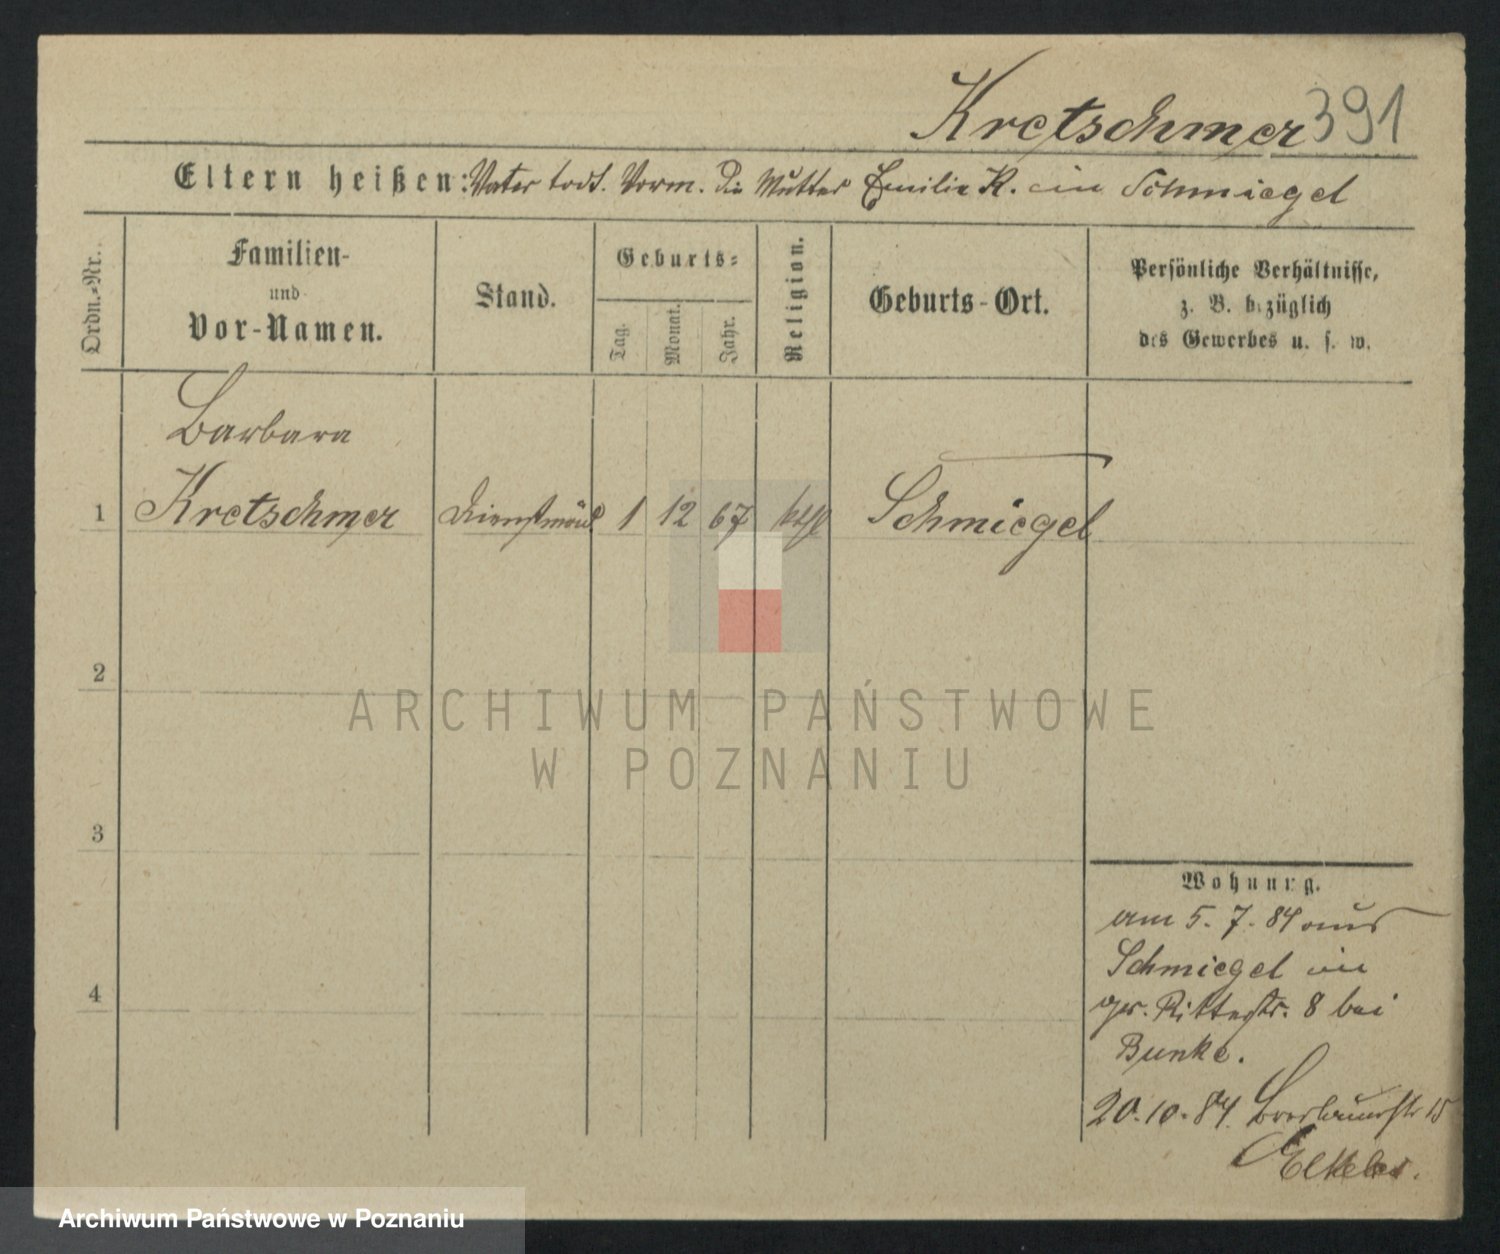 Kretschmer 391
Eltern heißen: Vater todt. Vorm. die Mutter Emilie K. in Schmiegel
Ordn.-Nr.
Familien-
und
Vor-Namen.
Stand.
Geburts-
Tag.
Monat.
Jahr.
Religion.
Geburts-Ort.
Persönliche Verhältnisse,
z. B. bezüglich
des Gewerbes u. s. w.
Barbara
1 Kretschmer Dienstmäd 1 12 67 kath Schmiegel
2
3
4
Wohnung.
am 5. 7. 84 aus
Schmiegel in
gr. Ritterstr. 8 bei
Bunke.
20. 10. 84. 15
Elkeles.
ARCHIWUM PAŃSTWOWE
W POZNANIU
Archiwum Państwowe w Poznaniu